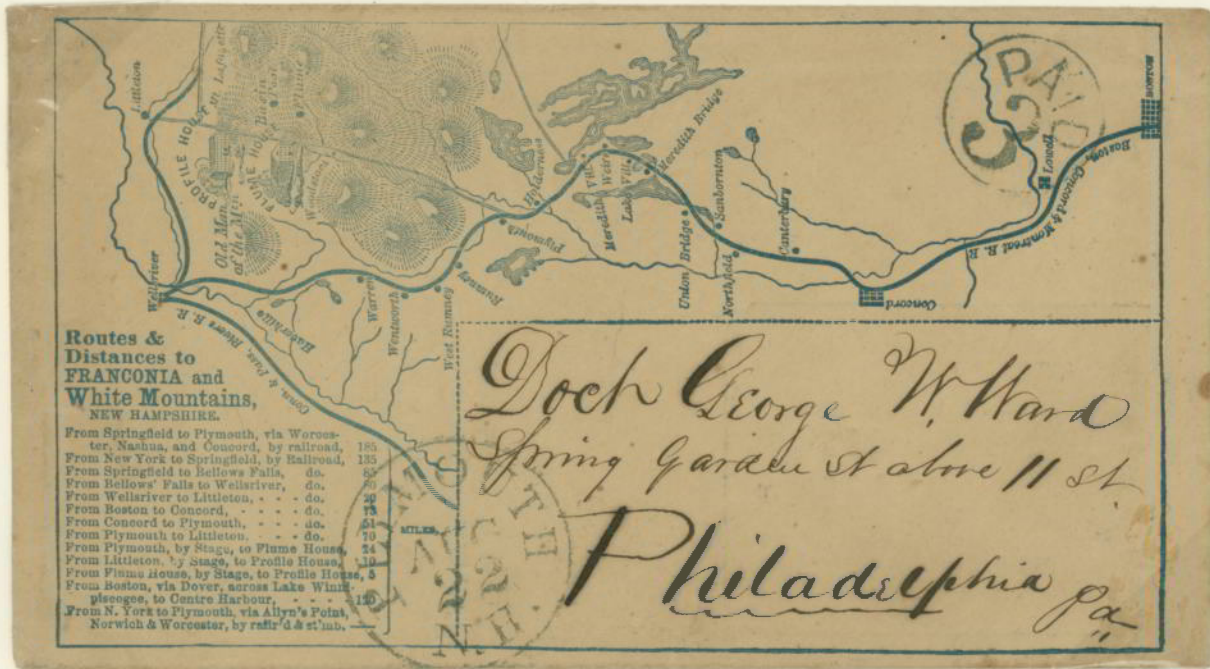 Littleton
PROFILE HOUSE
Mt Lafayette
Old Man
of the Mtn
Basin
Pool
Flume
FLUME HOUSE
Woodstock
Wellsriver
Haverhill
Warren
Wentworth
West Rumney
Rumney
Plymouth
Holderness
Meredith Vil.
Weirs
Lake Vil.
Meredith Bridge
Union Bridge
Sanbornton
Northfield
Canterbury
Concord
Lowell
BOSTON
Boston, Concord & Montreal R. R.
Conn. & Pass. Rivers R. R.
PAID
3
Routes &
Distances to
FRANCONIA and
White Mountains,
NEW HAMPSHIRE.
From Springfield to Plymouth, via Worces-
ter, Nashua, and Concord, by railroad, 185
From New York to Springfield, by Railroad, 135
From Springfield to Bellows Falls, do. 85
From Bellows' Falls to Wellsriver, do.
From Wellsriver to Littleton, - - - do. 20
From Boston to Concord, - - - - do. 73
From Concord to Plymouth, - - - - do. 51
From Plymouth to Littleton. - - - do. 70
From Plymouth, by Stage, to Flume House, 24
From Littleton, by Stage, to Profile House, 10
From Flume House, by Stage, to Profile House, 5
From Boston, via Dover, across Lake Winni-
piseogee, to Centre Harbour, - - - -
From N. York to Plymouth, via Allyn's Point,
Norwich & Worcester, by railr'd & st'mb.
MILES.
PLYMOUTH
AUG
22
N.H
Doct George W. Ward
Spring Garden St above 11 st
Philadelphia
Pa